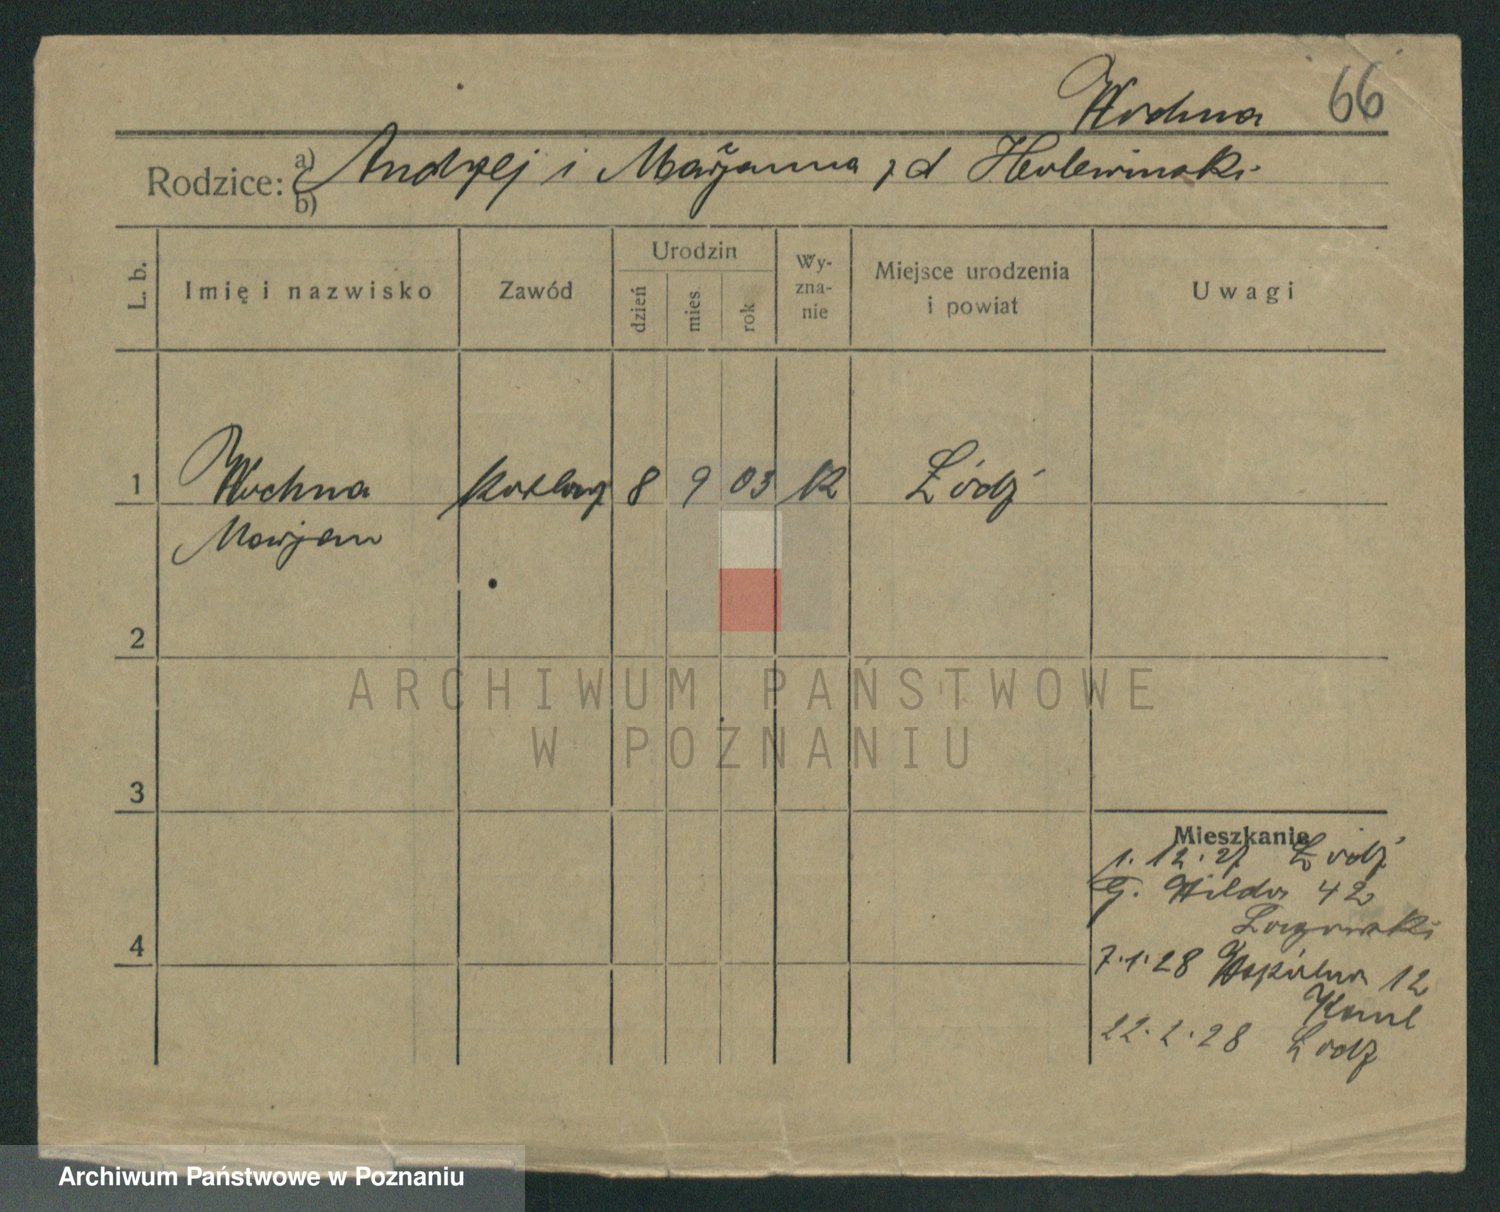 Wochna 66
Rodzice: a) Andrzej i Marjanna z d
b)
L. b.
Imię i nazwisko
Zawód
Urodzin
dzień
mies.
rok
Wy-
zna-
nie
Miejsce urodzenia
i powiat
Uwagi
1 Wochna 8 9 03 K Łódź
Marjan
2
ARCHIWUM PAŃSTWOWE
W POZNANIU
3
Mieszkanie
1.12.27 Łódź
G. Wilda 42
4
7.1.28 Wspólna 12
22.2.28 Łodz
Archiwum Państwowe w Poznaniu